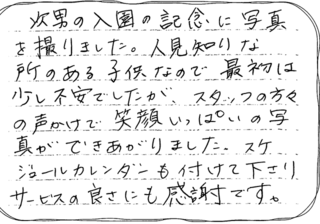 次男の入園の記念に写真
を撮りました。人見知りな
所のある子供なので最初は
少し不安でしたが、スタッフの方々
の声かけで笑顔いっぱいの写
真ができあがりました。スケ
ジュールカレンダーも付けて下さり
サービスの良さにも感謝です。